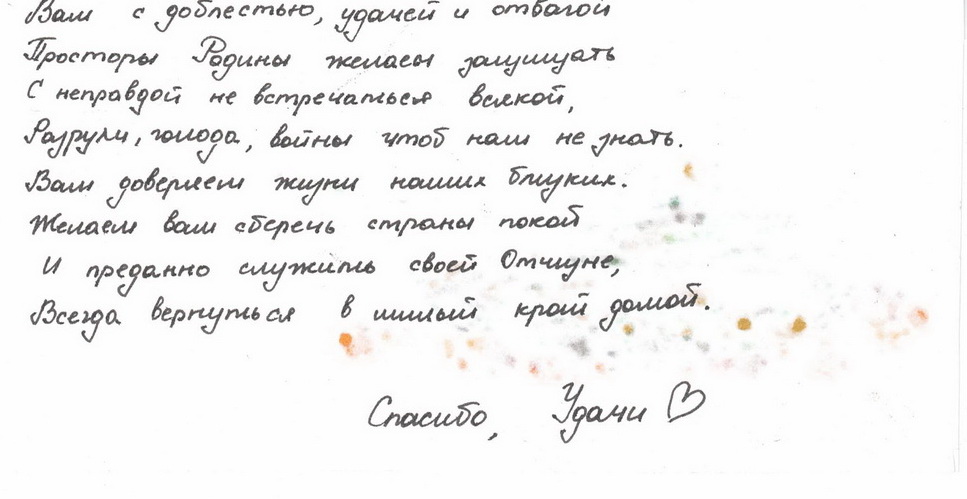 Вам с доблестью, удачей и отвагой
Просторы Родины желаем защищать
С неправдой не встречаться всякой,
Разрухи, голода, войны чтоб нам не знать.
Вам доверяем жизни наших близких.
Желаем вам сберечь страны покой
И преданно служить своей Отчизне,
Всегда вернуться в милый край домой.
Спасибо, Удачи ♡